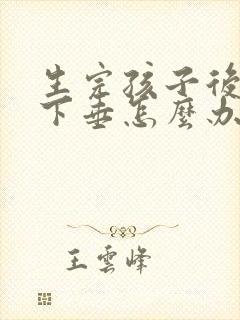 生完孩子後
下垂怎麼办
王雲峰